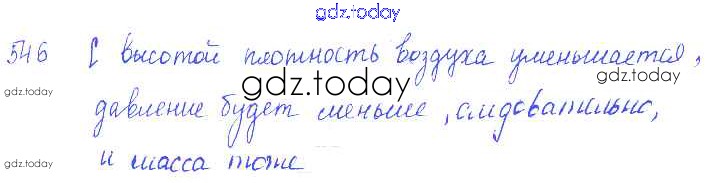 gdz.today
546 С высотой плотность воздуха уменьшается,
gdz.today
gdz.today
gdz.today
давление будет меньше, следовательно,
и масса тоже
gdz.today
gdz.today